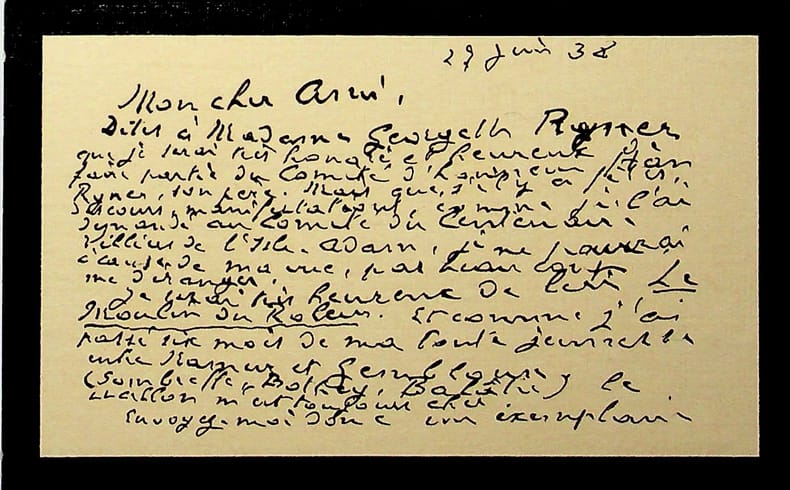 27 juin 38
Mon cher Ami,
Dites à Madame Georgette Ryner
que je serai très honoré et heureux de
faire partie du Comité d'honneur Han
Ryner, son père. Mais que, s'il y a fêtes,
discours, manifestations, comme je l'ai
demandé au Comité du Centenaire
Villiers de l'Isle-Adam, je ne pourrai
à cause de ma vue, pas beaucoup
me déranger.
Je serai très heureux de lire Le
Moulin du
Et comme j'ai
passé six mois de ma toute jeunesse
entre Namur et Gembloux
(Sombreffe, Bothey, Balâtre) le
wallon m'est toujours cher
Envoyez-moi donc un exemplaire